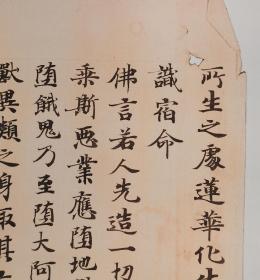 所生之處蓮華化生
識宿命
佛言若人先造一切
乘斯惡業應墮地獄
墮餓鬼乃至墮大阿
獸異類之身取其